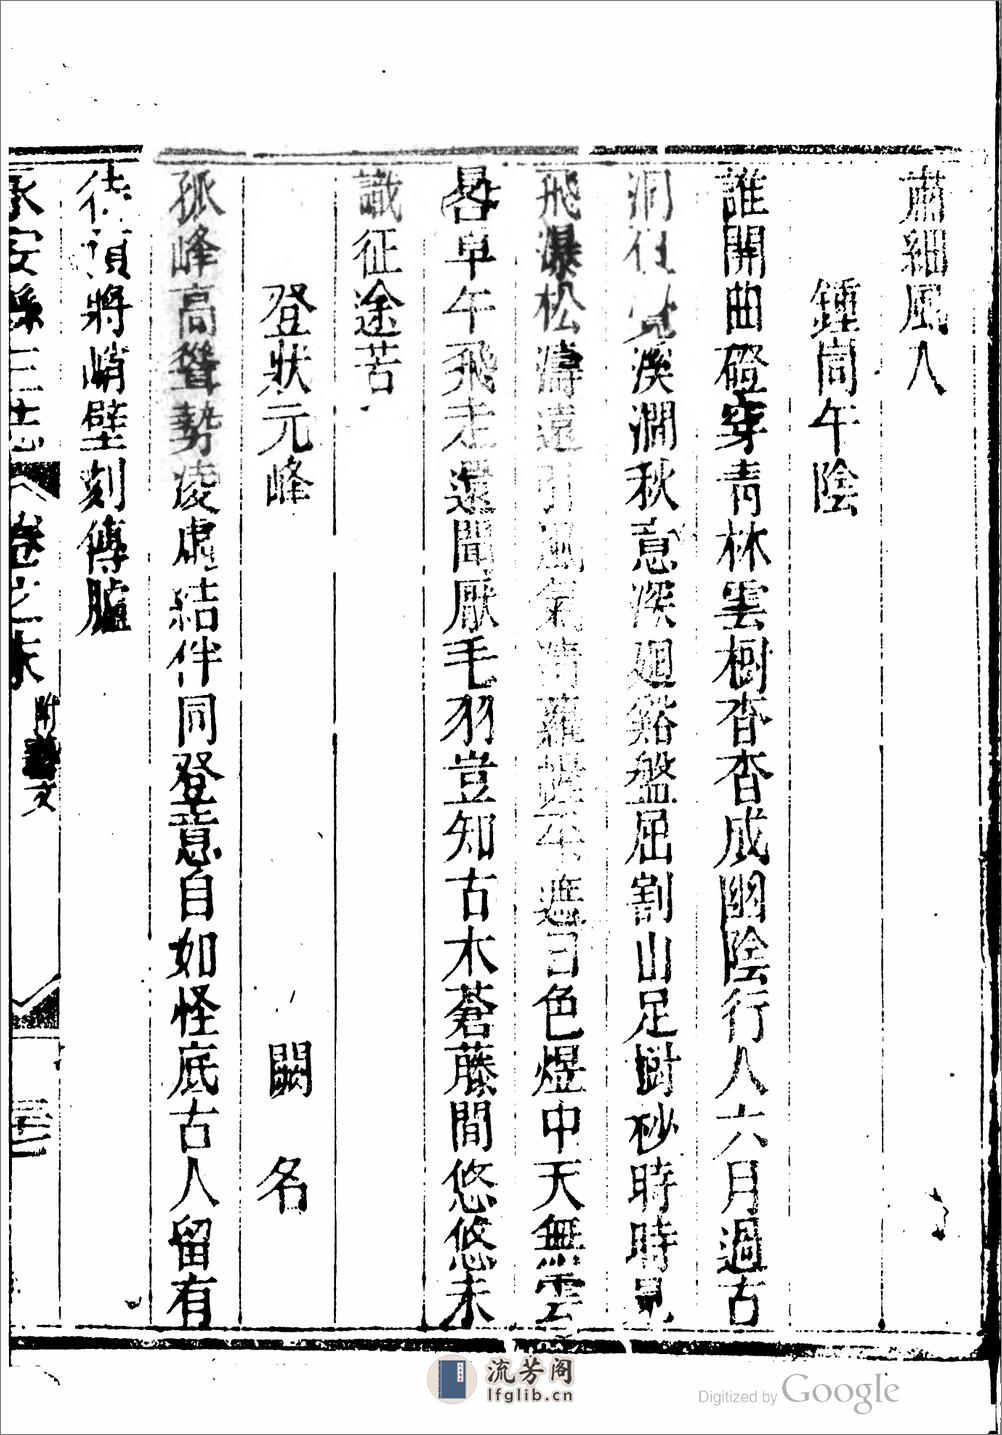 肅細風人
鍾同午陰
誰開曲磴穿青林雲樹杳杳成幽陰行人六月過古
洞但覺溪澗秋意深廻谿盤屈割山足樹杪時時見
飛瀑松濤遠引風氣清蘿幄平遮日色煜中天無雲
晷卓午飛走還聞厭毛羽豈知古木蒼藤間悠悠未
識征途苦
登狀元峰 闕名
孤峰高聳勢凌虛結伴同登意自如怪底古人留有
待預將峭壁刻傳臚
永安縣三志 卷之末 附藝文
流芳阁
lfglib.cn
Digitized by Google